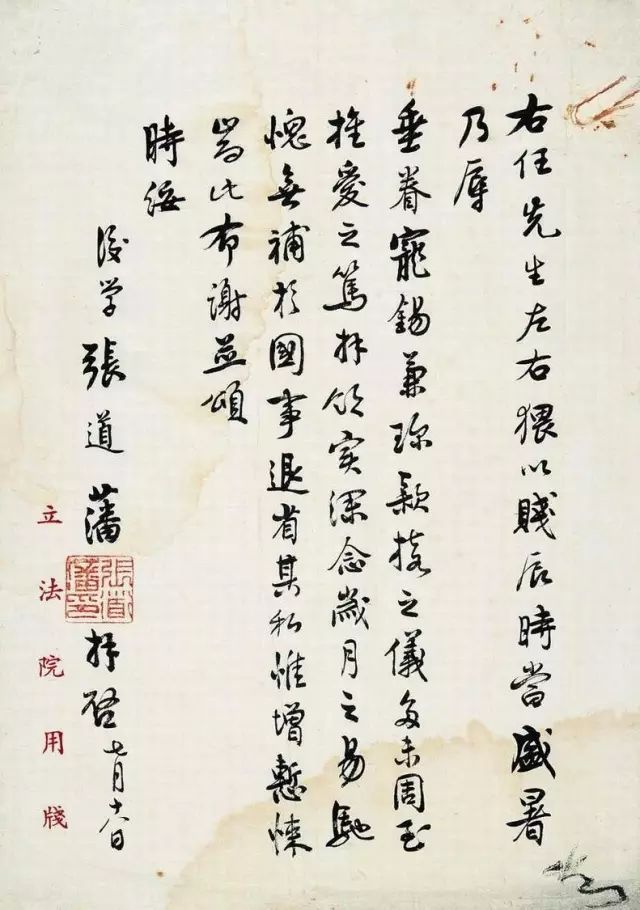 右任先生左右猥以賤辰時當盛暑
乃辱
垂眷寵錫兼珍款接之儀多未周至
推愛之篤拜領實深念歲月之易馳
愧無補於國事退省其私惟增慙悚
耑此布謝並頌
時綏
後学張道藩拜啓七月十八日
張道藩印
立法院用牋